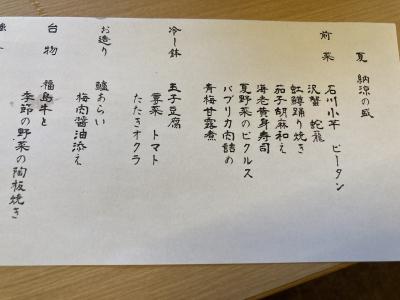 夏 納涼の盛
前菜
石川小芋 ピータン
沢蟹 蛇籠
虹鱒踊り焼き
茄子胡麻和え
海老黄身寿司
夏野菜のピクルス
パプリカ肉詰め
青梅甘露煮
冷し鉢
玉子豆腐
蓴菜 トマト
たたきオクラ
お造り
鱸あらい
梅肉醤油添え
台物
福島牛と
季節の野菜の陶板焼き